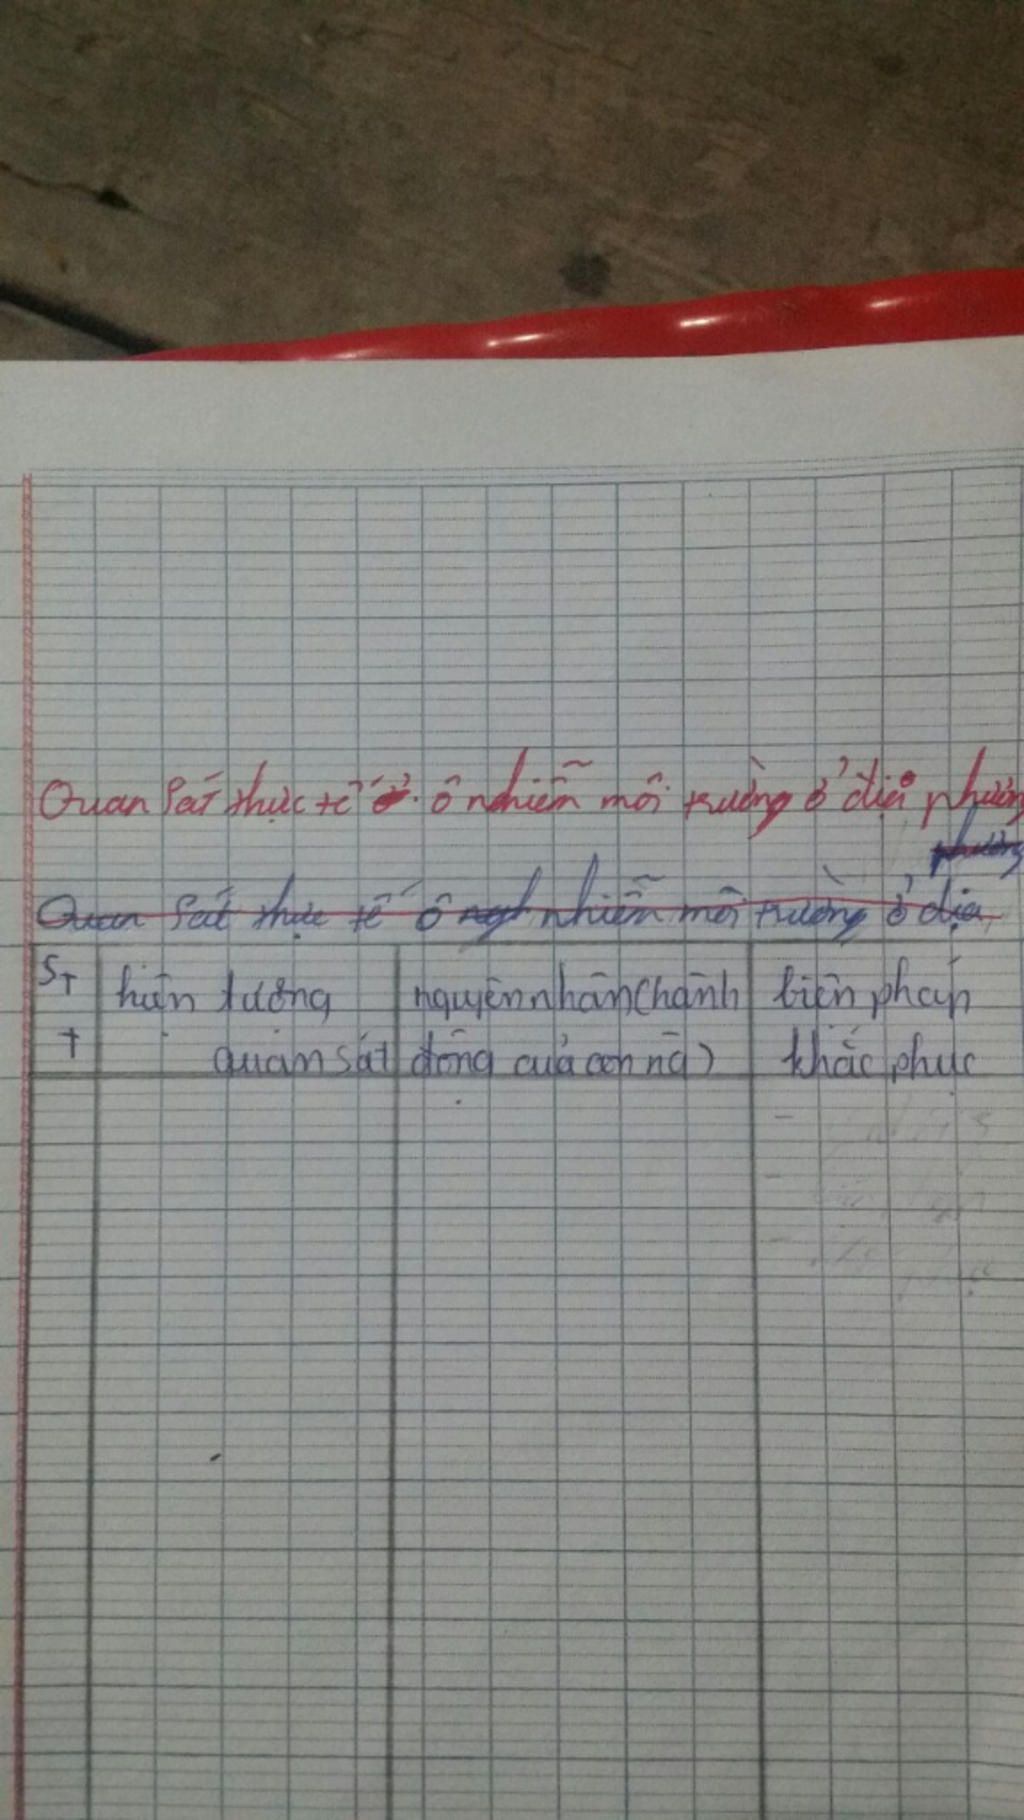 Quan sát thực tế ô nhiễm môi trường ở địa phương
phương
Quan sát thực tế ô nhiễm môi trường ở địa
STT hiện tượng quan sát
nguyên nhân (hành động của con ng)
biện pháp khắc phục